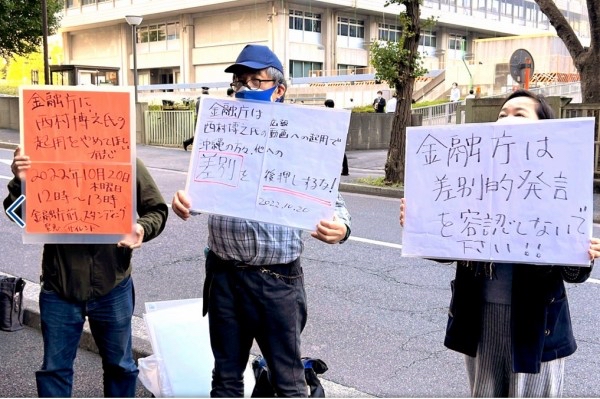 金融庁に
西村博之氏の
起用をやめてほし
有志
2022年10月20日
木曜日
12時〜13時
金融庁前スタンディング
金融庁は
西村博之氏の広報動画への起用で
沖縄の方々、他への
差別を
後押しするな!
2022.10.20
金融庁は
差別的発言
を容認しないで
下さい!!